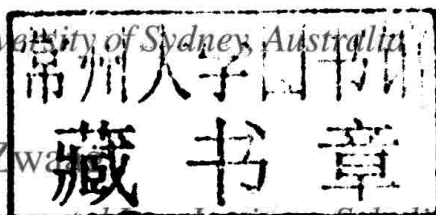 versity of Sydney, Australia
常州大学图书馆
藏书章
Zwaa